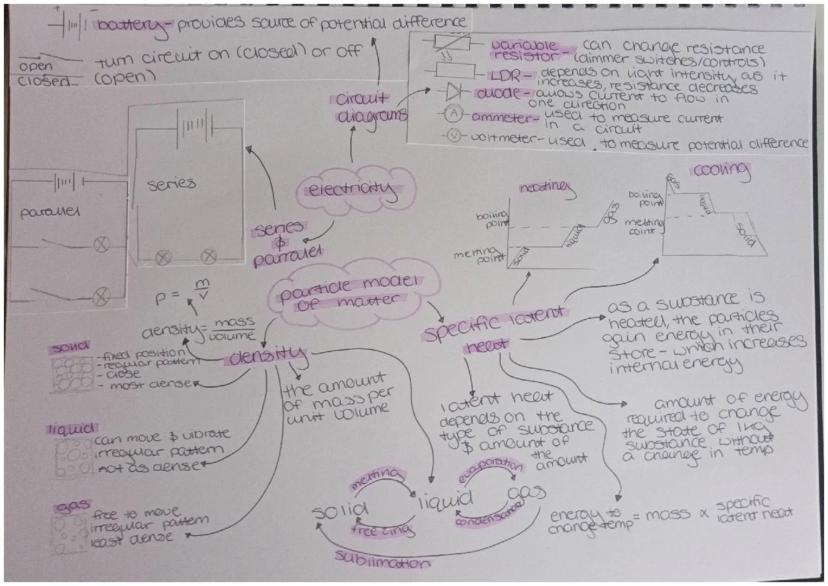 battery- provides source of potential difference
open
closed
turn circuit on (closed) or off
(open)
circuit
diagrams
variable
resistor- can change resistance
(dimmer switches/controls)
LDR- depends on light intensity as it
increases, resistance decreases
diode- allows current to flow in
one direction
A
ammeter- used to measure current
in a circuit
V
voltmeter- used to measure potential difference
series
parallel
electricity
series
&
parallel
heating
boiling
point
melting
point
solid
liquid
gas
cooling
boiling
point
melting
point
gas
liquid
solid
particle model
of matter
P = m/v
density = mass/volume
density
the amount
of mass per
unit volume
solid
- fixed position
- regular pattern
- close
- most dense
liquid
can move & vibrate
irregular pattern
not as dense
gas
free to move
irregular pattern
least dense
specific latent
heat
as a substance is
heated, the particles
gain energy in their
store- which increases
internal energy
latent heat
depends on the
type of substance
& amount of
the
amount
amount of energy
required to change
the state of 1kg
substance without
a change in temp
energy to
change temp = mass x specific
latent heat
solid
melting
freezing
liquid
evaporation
gas
sublimation